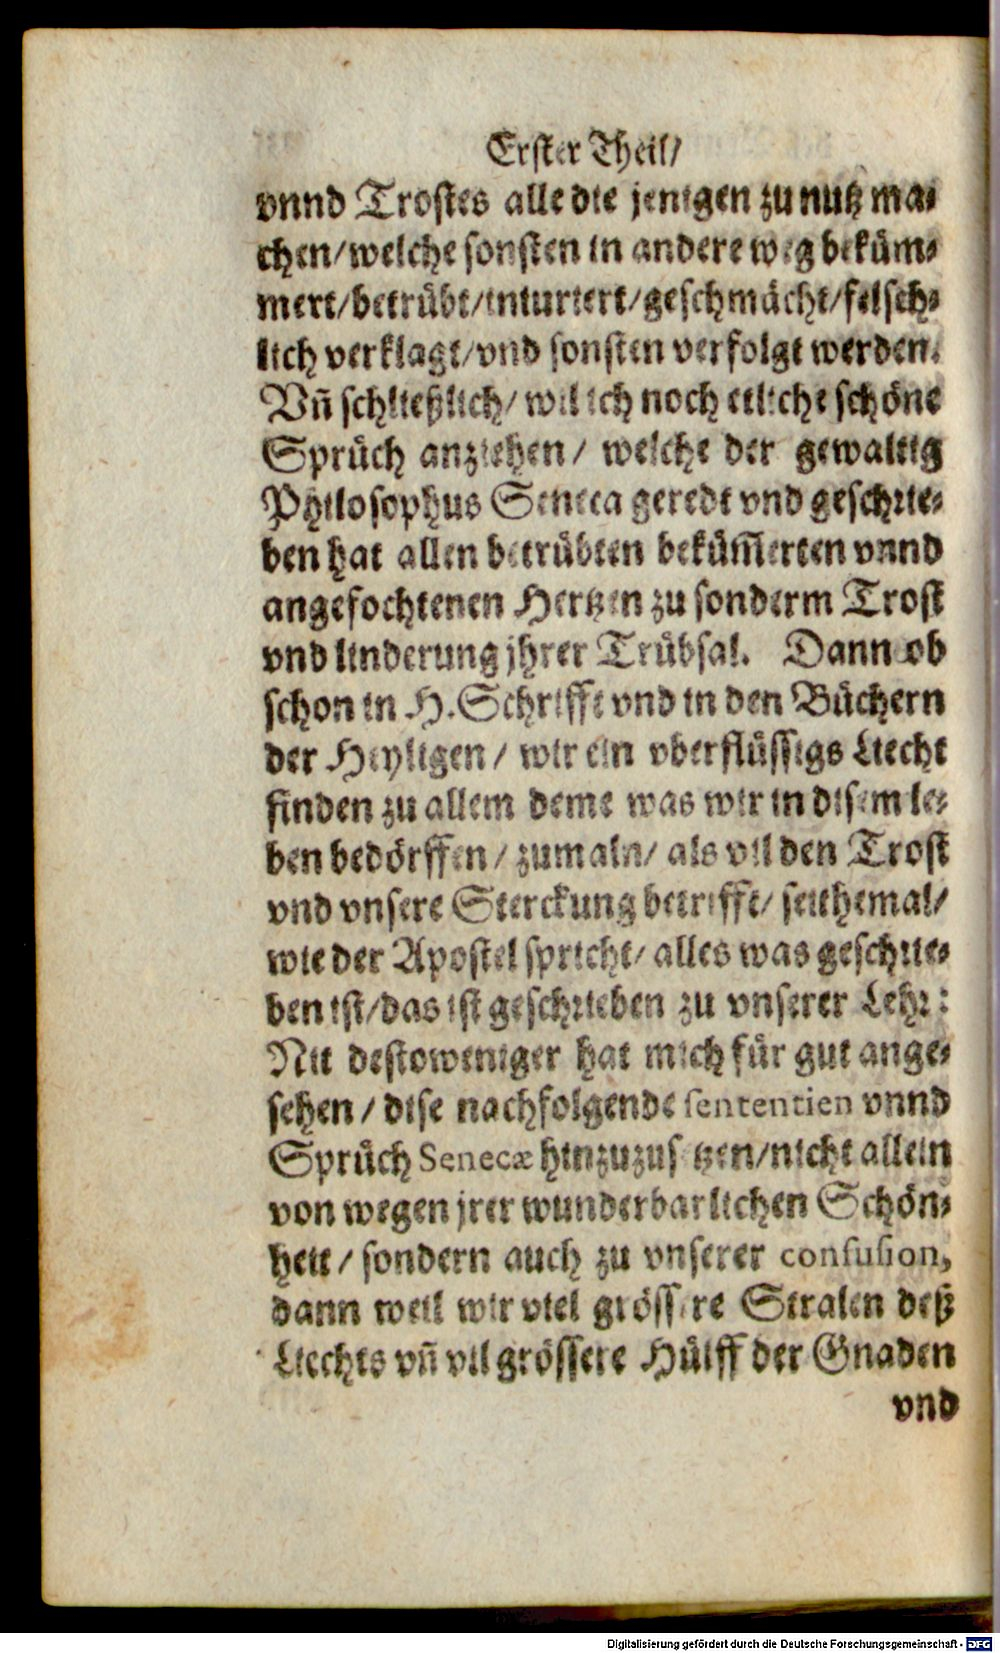 Erster Theil/
vnnd Trostes alle die jenigen zu nutz ma-
chen/welche sonsten in andere weg bekům-
mert/betrübt/iniuriert/geschmächt/felsch-
lich verklagt/vnd sonsten verfolgt werden.
Vñ schließlich/ wil ich noch etliche schöne
Sprůch anziehen/ welche der gewaltig
Philosophus Seneca geredt vnd geschrie-
ben hat allen betrůbten bekům̃erten vnnd
angefochtenen Hertzen zu sonderm Trost
vnd linderung jhrer Trůbsal. Dann ob
schon in H. Schrifft vnd in den Bůchern
der Heyligen/ wir ein vberflůssigs Liecht
finden zu allem deme was wir in disem le-
ben bedörffen/ zumaln/ als vil den Trost
vnd vnsere Sterckung betrifft/ seithemal/
wie der Apostel spricht/ alles was geschrie-
ben ist/das ist geschrieben zu vnserer Lehr:
Nit destoweniger hat mich für gut ange-
sehen/ dise nachfolgende sententien vnnd
Sprůch Senecæ hinzuzusetzen/nicht allein
von wegen jrer wunderbarlichen Schön-
heit/ sondern auch zu vnserer confusion,
dann weil wir viel grössere Stralen deß
Liechts vñ vil grössere Hůlff der Gnaden
vnd
Digitalisierung gefördert durch die Deutsche Forschungsgemeinschaft - DFG